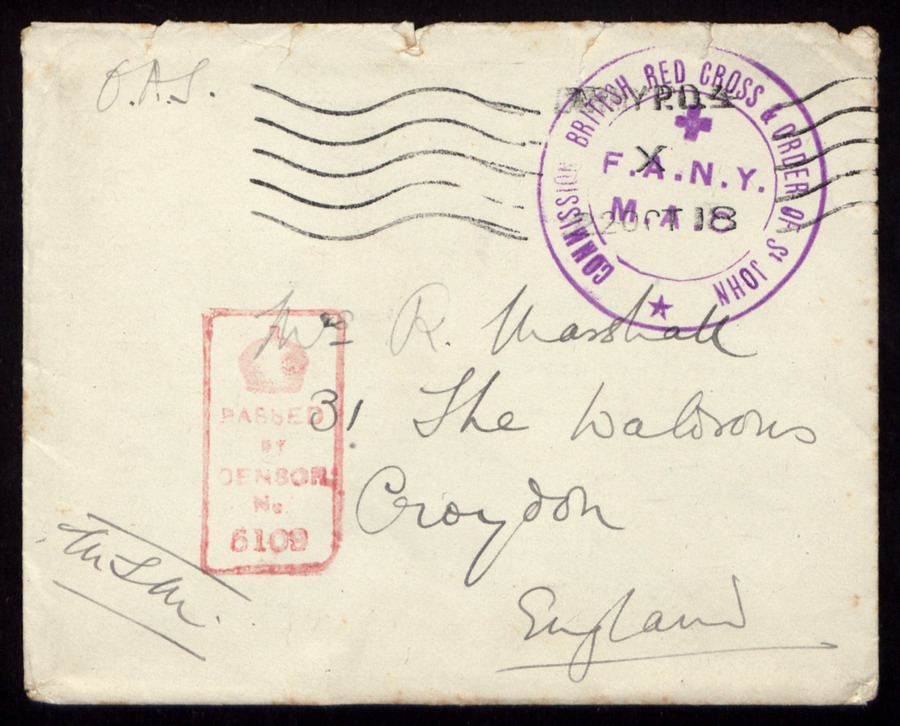 O.A.S.
ARMY P.O. 4
X
22 OCT 18
COMMISSION BRITISH RED CROSS & ORDER OF St JOHN
F.A.N.Y.
Mrs R. Marshall
31 The Waldrons
Croydon
England
PASSED
BY
CENSOR
No
6109